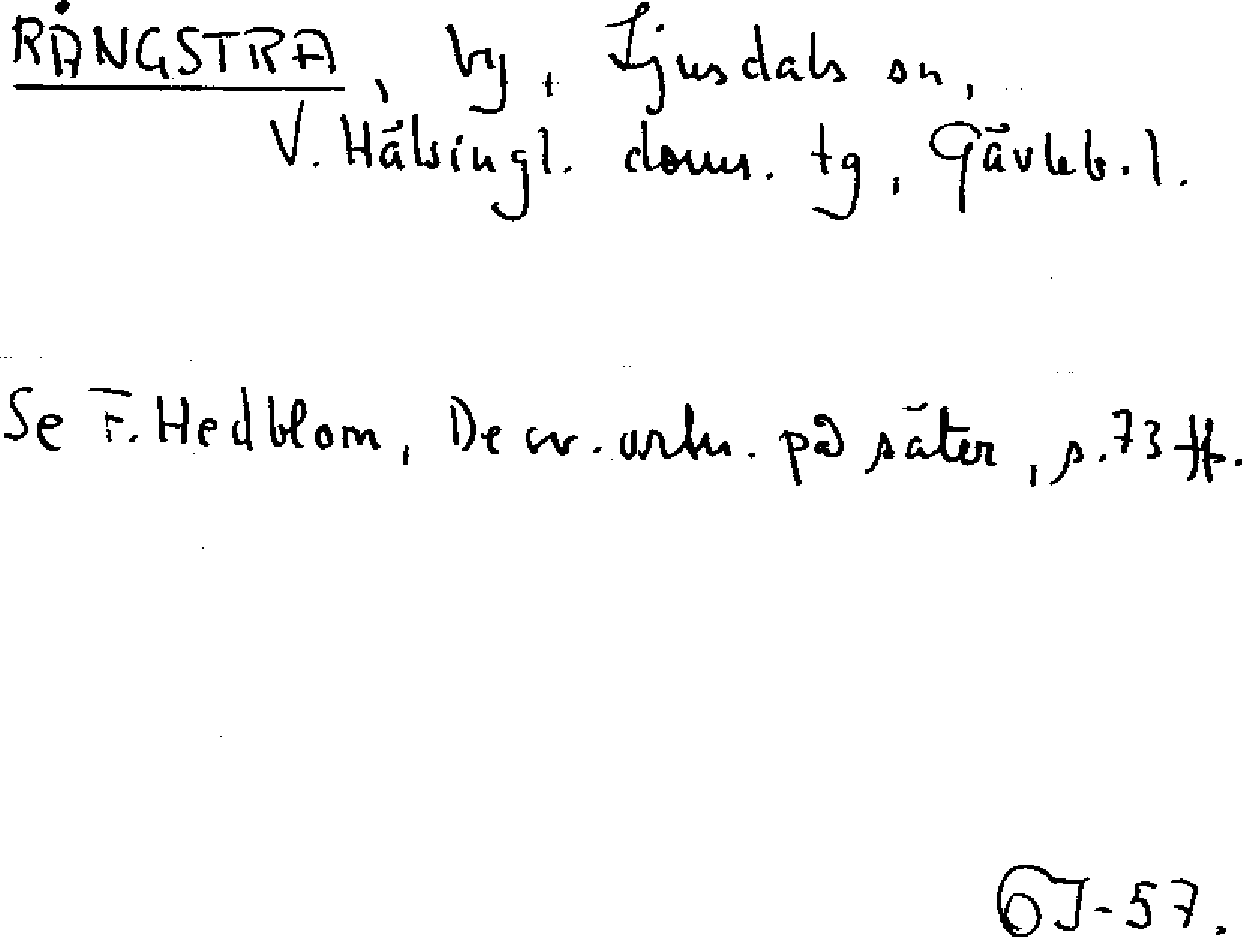 RÅNGSTRA, by, Ljusdals sn,
V. Hälsingl. doms. tg, Gävleb. l.
Se F. Hedblom, De sv. ortn. på säter, s. 73 ff.
GJ-57.